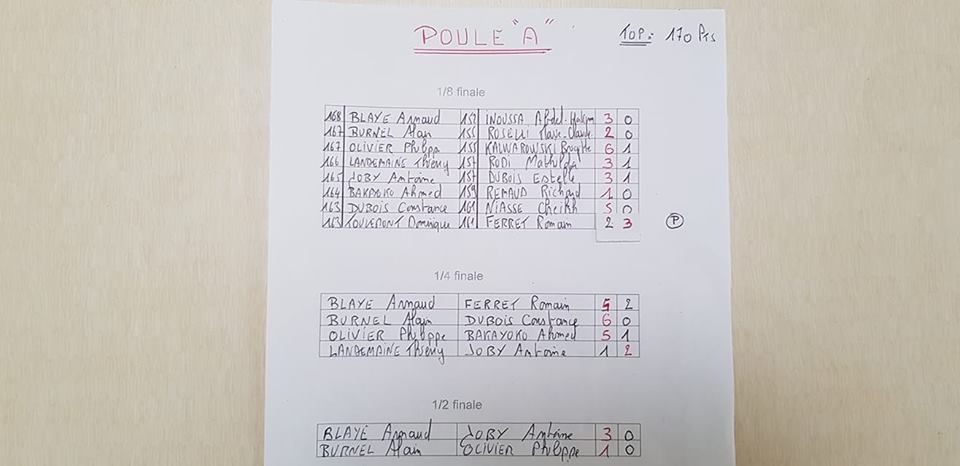 POULE "A"
TOP: 170 Pts
1/8 finale
168 BLAYE Arnaud 152 INOUSSA Abdel-Hakim 3 0
167 BURNEL Alain 155 ROSELLI Marie-Claude 2 0
167 OLIVIER Philippe 155 KALWAROWSKI Brigitte 6 1
166 LANDEMAINE Thierry 157 RODI Mathilde 3 1
165 JOBY Antoine 157 DUBOIS Estelle 3 1
164 BAKAYOKO Ahmed 159 REMAUD Richard 1 0
163 DUBOIS Constance 161 NIASSE Cheikh 5 0
163 Dominique 161 FERRET Romain 2 3 P
1/4 finale
BLAYE Arnaud FERRET Romain 5 2
BURNEL Alain DUBOIS Constance 6 0
OLIVIER Philippe BAKAYOKO Ahmed 5 1
LANDEMAINE Thierry JOBY Antoine 1 2
1/2 finale
BLAYE Arnaud JOBY Antoine 3 0
BURNEL Alain OLIVIER Philippe 1 0